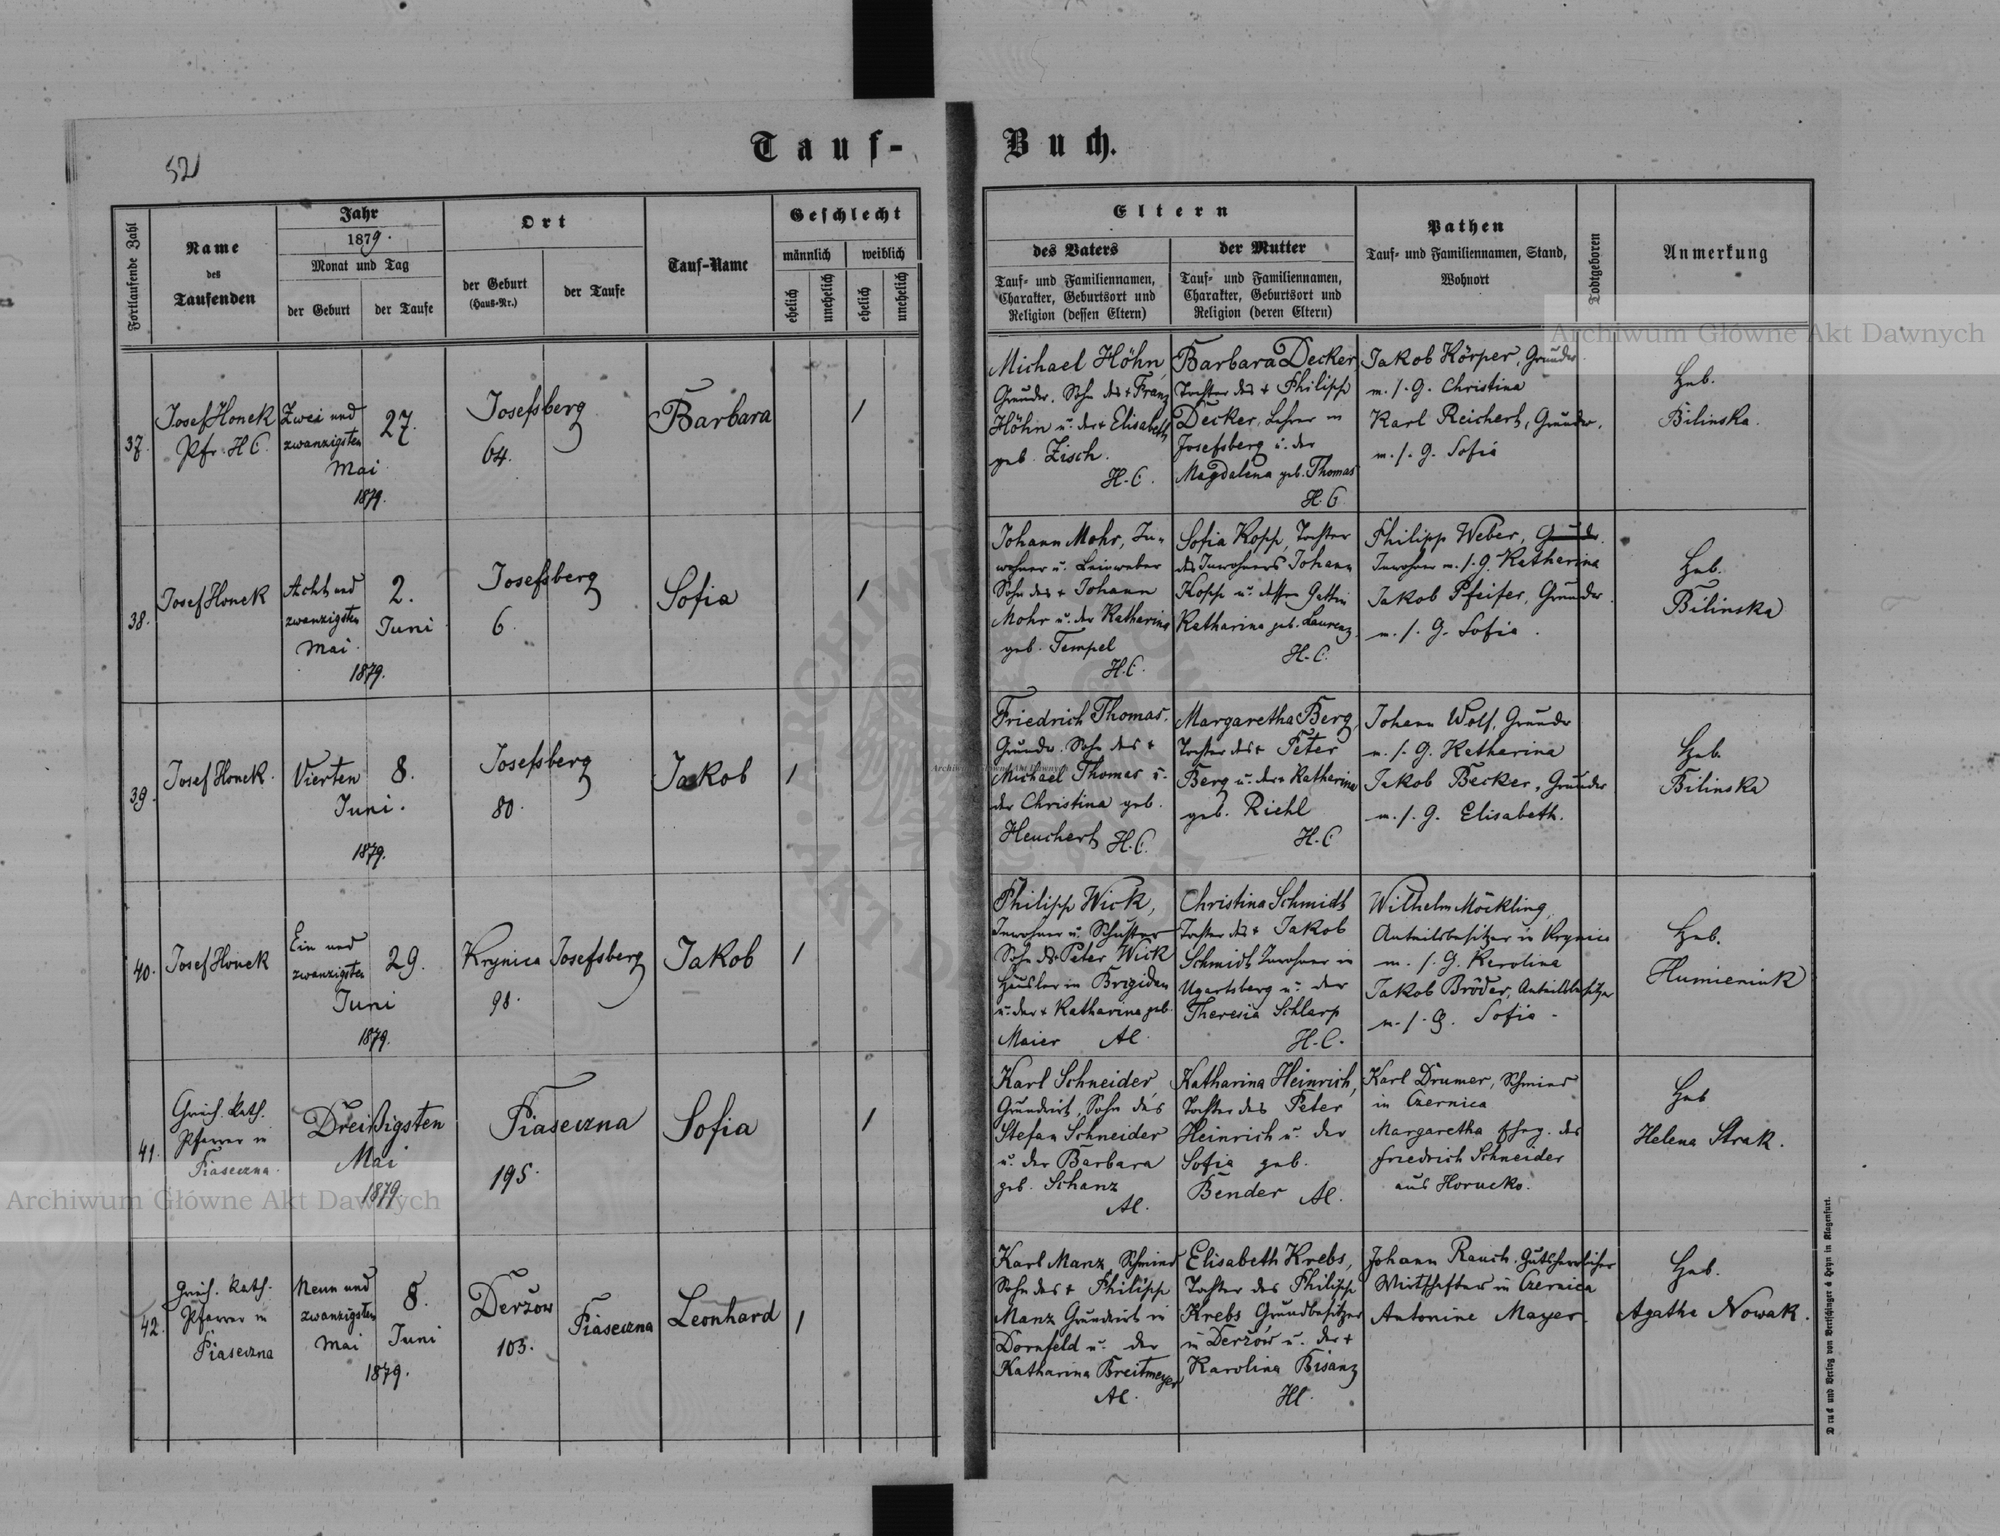 Tauf-Buch.
521
Fortlaufende Zahl
Name
des
Taufenden
Jahr
1879.
Monat und Tag
der Geburt
der Taufe
Ort
der Geburt
(Haus-Nr.)
der Taufe
Tauf-Name
Geschlecht
männlich
weiblich
ehelich
unehelich
ehelich
unehelich
Eltern
des Vaters
Tauf- und Familiennamen,
Charakter, Geburtsort und
Religion (dessen Eltern)
der Mutter
Tauf- und Familiennamen,
Charakter, Geburtsort und
Religion (deren Eltern)
Pathen
Tauf- und Familiennamen, Stand,
Wohnort
Todtgeboren
Anmerkung
37.
Josef Honek
Pfr. H.C.
Zwei und
zwanzigsten
Mai
1879.
27.
Josefsberg
64.
Barbara
1
Michael Höhn,
Grundw. Sohn des + Franz
Höhn u. der + Elisabeth
geb. Zisch.
H.C.
Barbara Decker
Tochter des + Philipp
Decker, Lehrer in
Josefsberg u. der
Magdalena geb. Thomas
H.C.
Jakob Körper, Grundw.
m. s. G. Christina
Karl Reichert, Grundw.
m. s. G. Sofia
Heb.
Bilinska.
38.
Josef Honek
Acht und
zwanzigsten
Mai.
1879.
2.
Juni
Josefsberg
6.
Sofia
1
Johann Mohr, In-
wohner u. Leinweber
Sohn des + Johann
Mohr u. der Katharina
geb. Tempel
H.C.
Sofia Kopp, Tochter
des Inwohners Johann
Kopp u. dessen Gattin
Katharina geb. Laurenz.
H.C.
Philipp Weber, Grundw.
Inwohner m. s. G. Katharina
Jakob Pfeifer, Grundw.
m. s. G. Sofia.
Heb.
Bilinska
39.
Josef Honek.
Vierten
Juni.
1879.
8.
Josefsberg
80.
Jakob
1
Friedrich Thomas,
Grundw. Sohn des +
Michael Thomas u.
der Christina geb.
Heuchert H.C.
Margaretha Berg,
Tochter des + Peter
Berg u. der + Katharina
geb. Riehl
H.C
Johann Wolf, Grundw
m. s. G. Katharina
Jakob Becker, Grundw
m. s. G. Elisabeth.
Heb.
Bilinska
40.
Josef Honek
Ein und
zwanzigsten
Juni
1879.
29.
Krynica
98.
Josefsberg
Jakob
1
Philipp Wick,
Inwohner u. Schuster
Sohn des Peter Wick
Häusler in Brigidau
u. der + Katharina geb.
Maier AC.
Christina Schmidt
Tochter des + Jakob
Schmidt Inwohner in
Ugartsberg u. der
Theresia Schlarp
H.C.
Wilhelm Möckling,
Anteilsbesitzer in Krynica
m. s. G. Karolina
Jakob Bröder, Anteilsbesitzer
m. s. G. Sofia.
Heb.
Humieniuk
41.
Griech. kath.
Pfarrer in
Piaseczna.
Dreißigsten
Mai
1879
Piaseczna
195.
Sofia
1
Karl Schneider,
Grundwirt, Sohn des
Stefan Schneider
u. der Barbara
geb. Schanz
AC.
Katharina Heinrich,
Tochter des Peter
Heinrich u. der
Sofia geb.
Bender AC.
Karl Drumer, Schmied
in Czernica
Margaretha Eheg. des
Friedrich Schneider
aus Horucko.
Heb
Helena Strak.
42.
Griech. kath.
Pfarrer in
Piaseczna
Neun und
zwanzigsten
Mai
1879.
8.
Juni
Derżow
103.
Piaseczna
Leonhard
1
Karl Manz, Schmied
Sohn des + Philipp
Manz Grundwirt in
Dornfeld u. der
Katharina Breitmeyer
AC.
Elisabeth Krebs,
Tochter des Philipp
Krebs Grundbesitzer
in Derżów u. der +
Karolina Bisanz
HC.
Johann Rauch. Gutsherrlicher
Wirtschafter in Czernica
Antonine Mayer.
Heb.
Agatha Nowak.
Druck und Verlag von Bertschinger & Heyn in Klagenfurt.
Archiwum Główne Akt Dawnych
Archiwum Główne Akt Dawnych
Archiwum Główne Akt Dawnych